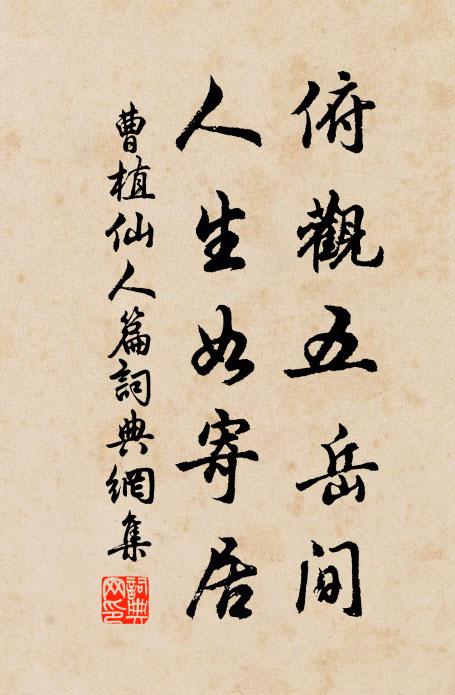 俯觀五岳间
人生如寄居
曹植仙人篇詞典網集
詞典網印